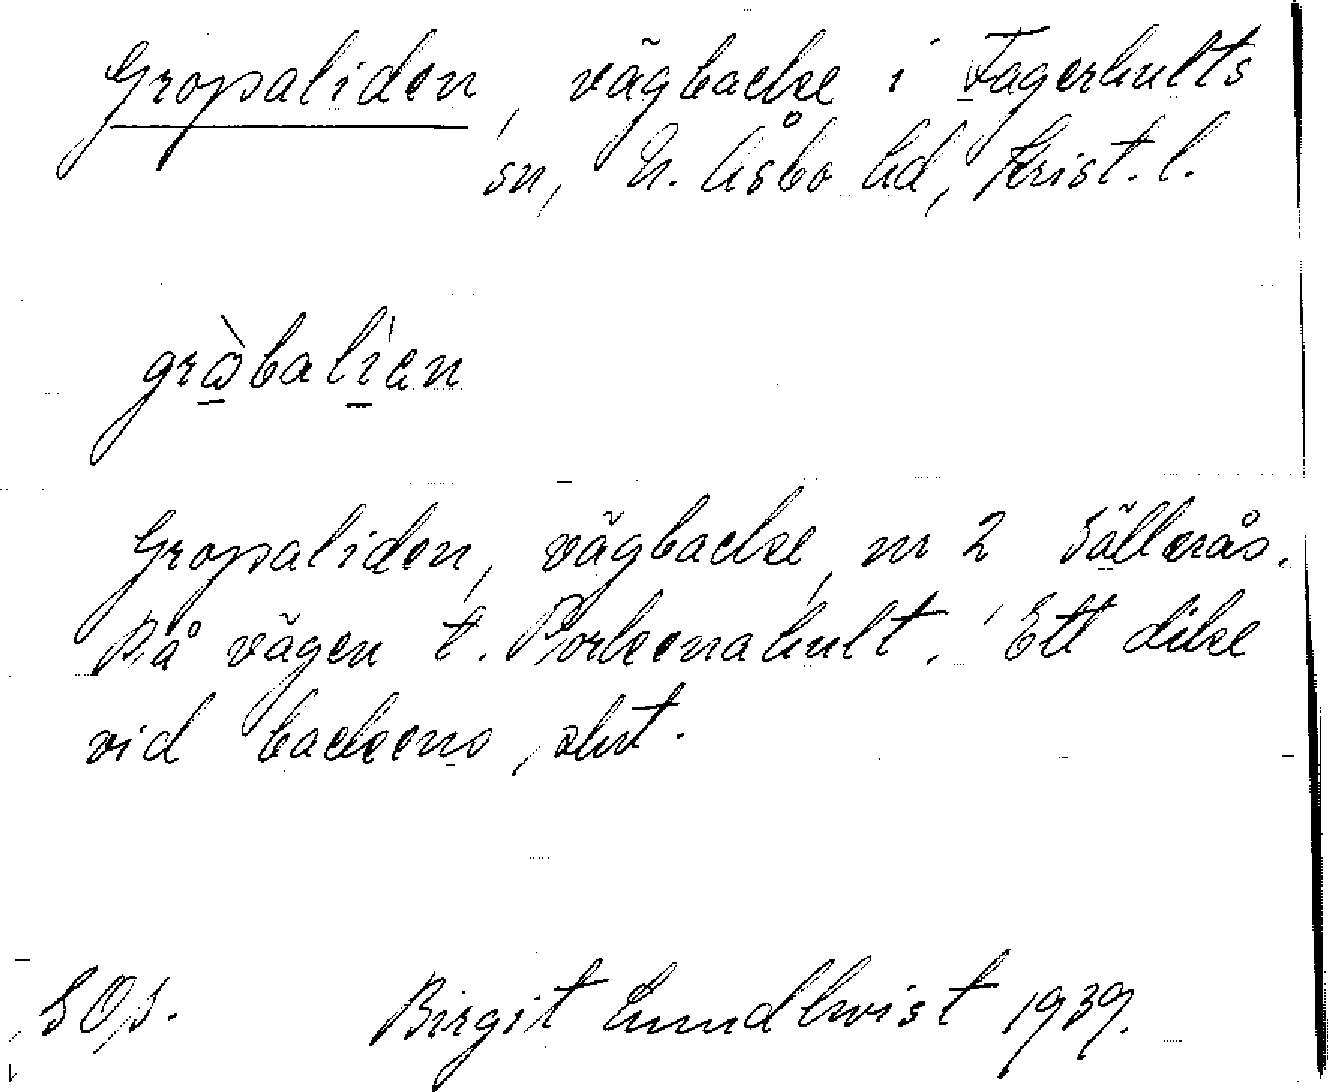 Gropaliden, vägbacke i Fagerhults
sn, N. Åsbo hd, Krist. l.
gròbalìen
Gropaliden, vägbacke, nr 2 Källerås.
På vägen t. Porkenahult. Ett dike
vid backens slut.
SOf. Birgit Lundkvist 1939.